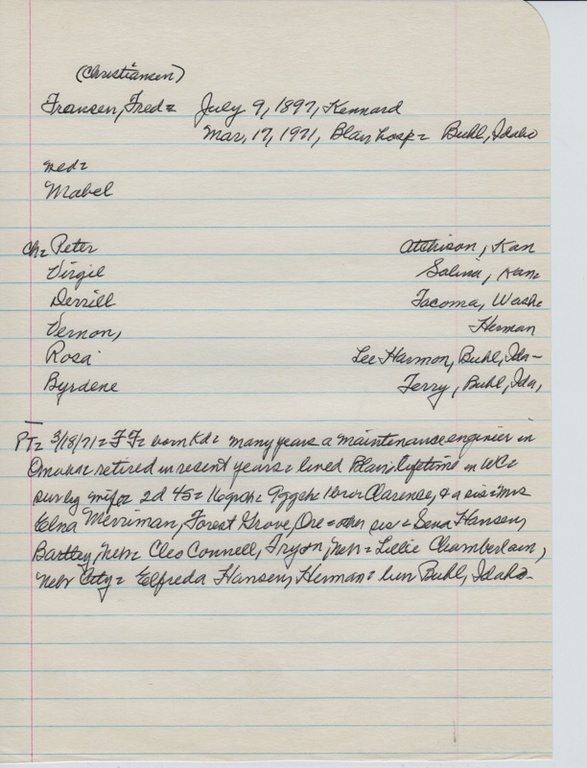 (Christiansen)
Fransen, Fred= July 9, 1897, Kennard
Mar, 17, 1971, Blair hosp= Buhl, Idaho
med=
Mabel
ch= Peter Atchison, Kan
Virgil Salina, Kan=
Derrill Tacoma, Wash=
Vernon, Herman
Rosa Lee Harmon, Buhl, Ida-
Byrdene Terry, Buhl, Ida,
PT= 3/18/71= FF= born Kd= many years a maintenance engineer in
Omaha= retired in resent years= lived lifetime in WC=
sur by wife= 2d 4S= 16gpch= 9ggch= 1bro Clarence, & a sis= Mrs
Elna Merriman, Forest Grove, Ore= other sis= Sena Hansen,
Bartley, Neb= Cleo Connell, Tryon, Neb= Lillie Chamberlain,
Nebr City= Elfreda Hansen, Herman= bur Buhl, Idaho-